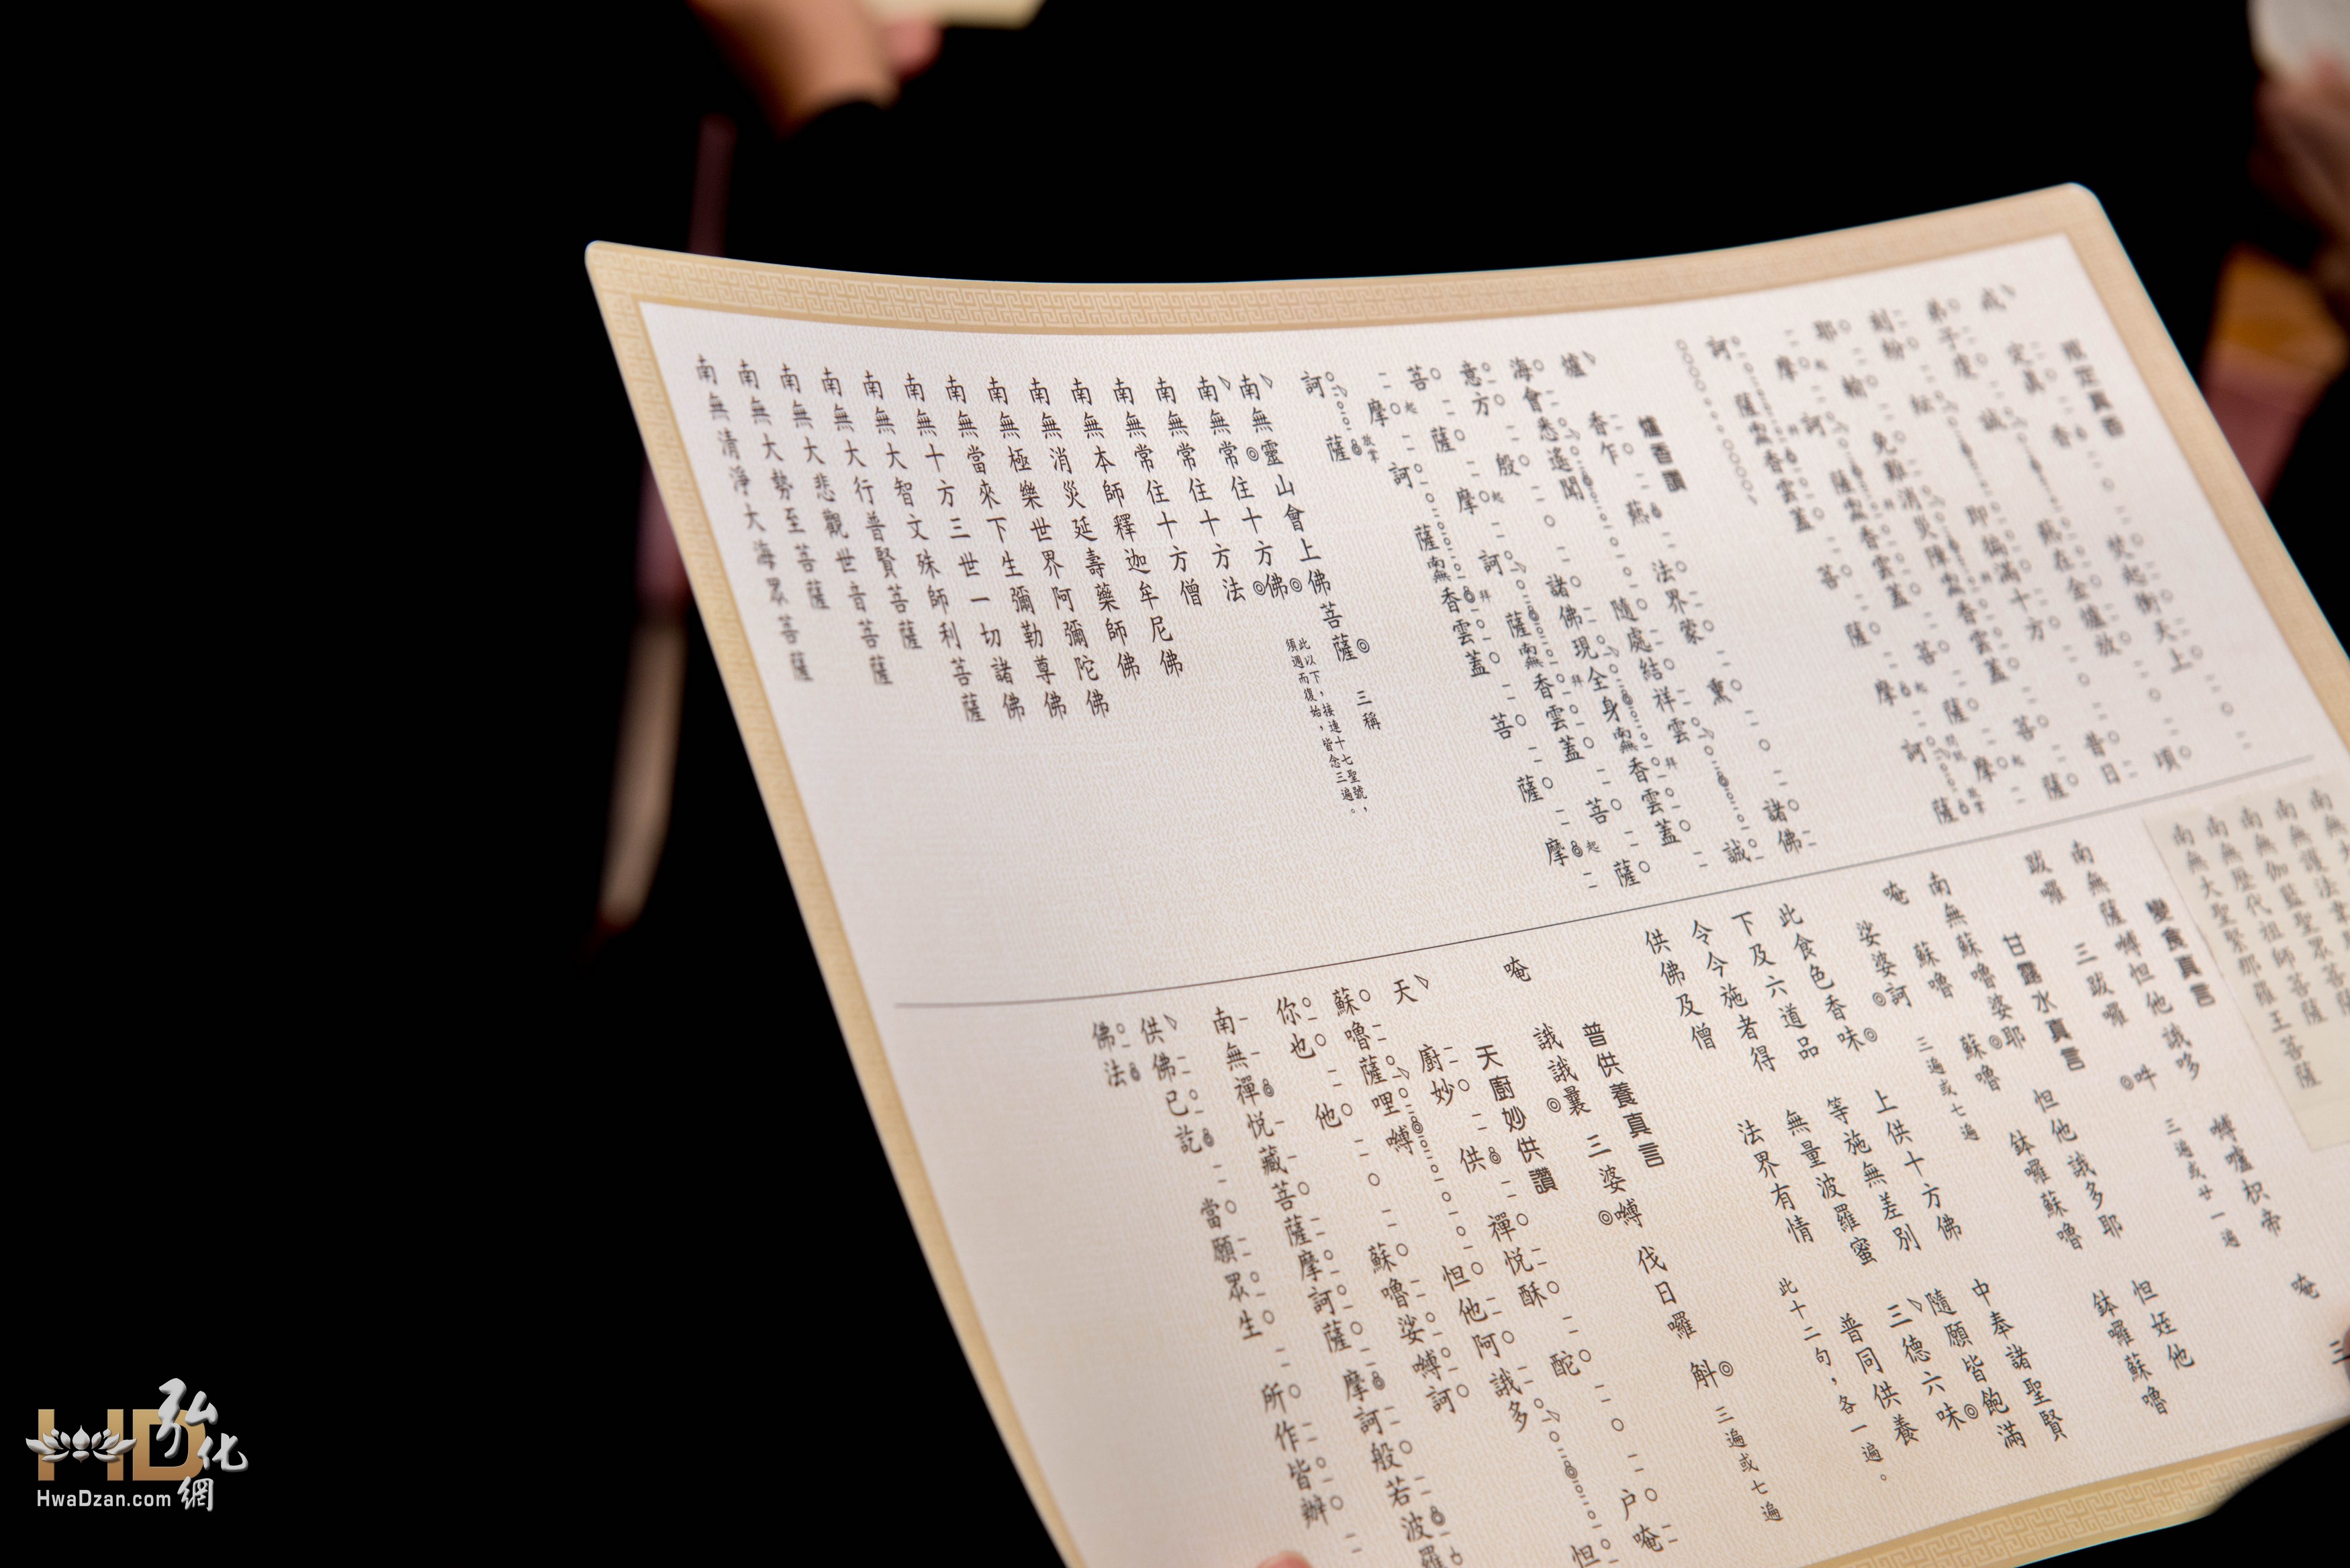 戒定真香
戒
定真
香
焚起衝天上
弟子虔
誠
爇在金爐放
頃
刻紛
紜
即徧滿十方
昔日
耶
輸
免難消災障南無香雲蓋
菩
薩
摩
訶
薩南無香雲蓋
菩
薩
摩
訶
薩南無香雲蓋
菩
薩
摩
訶
薩
爐香讚
爐
香乍
爇
法界蒙
熏
諸佛
海會悉遙聞
隨處結祥雲
誠
意方
殷
諸佛現全身南無香雲蓋
菩
薩
摩
訶
薩南無香雲蓋
菩
薩
摩
訶
薩南無香雲蓋
菩
薩
摩
訶
薩
南無靈山會上佛菩薩 三稱
此以下，接連十七聖號，
須週而復始，皆念三遍。
南無常住十方佛
南無常住十方法
南無常住十方僧
南無本師釋迦牟尼佛
南無消災延壽藥師佛
南無極樂世界阿彌陀佛
南無當來下生彌勒尊佛
南無十方三世一切諸佛
南無大智文殊師利菩薩
南無大行普賢菩薩
南無大悲觀世音菩薩
南無大勢至菩薩
南無清淨大海眾菩薩
南無護法
南無伽藍聖眾菩薩
南無歷代祖師菩薩
南無大聖緊那羅王菩薩
變食真言
南無薩嚩怛他誐哆 嚩嚧枳帝 唵 三
跋囉 三跋囉 吽 三遍或廿一遍
甘露水真言
南無蘇嚕婆耶 怛他誐多耶 怛姪他
唵 蘇嚕 蘇嚕 鉢囉蘇嚕 鉢囉蘇嚕
娑婆訶 三遍或七遍
此食色香味 上供十方佛 中奉諸聖賢
下及六道品 等施無差別 隨願皆飽滿
令今施者得 無量波羅蜜 三德六味
供佛及僧 法界有情 普同供養
此十二句，各一遍。
普供養真言
唵 誐誐曩 三婆嚩 伐日囉 斛 三遍或七遍
天廚妙供讚
天
廚妙
供
禪悅酥
酡
戶唵
蘇嚕薩哩嚩
怛他阿誐多
怛
你也
他
蘇嚕娑嚩訶
南無禪悅藏菩薩摩訶薩 摩訶般若波羅
供佛已訖
當願眾生
所作皆辦
佛法
HD弘化網
HwaDzan.com